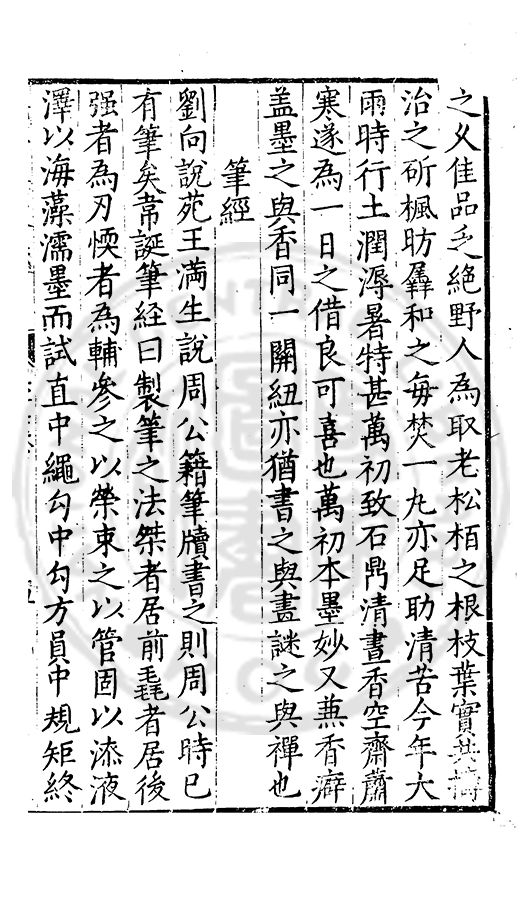 之乆佳品乏絶野人為取老松栢之根枝葉實共擣
治之斫楓肪羼和之每焚一丸亦足助清苦今年大
雨時行土潤溽暑特甚萬初致石鼎清晝香空齋蕭
寒遂為一日之借良可喜也萬初本墨妙又兼香癖
盖墨之與香同一關紐亦猶書之與畫謎之與禪也
筆經
劉向說苑王滿生說周公籍筆牘書之則周公時已
有筆矣韋誕筆經曰製筆之法桀者居前毳者居後
强者為刃愞者為輔參之以𦮼束之以管固以漆液
澤以海藻濡墨而試直中繩勾中勾方員中規矩終